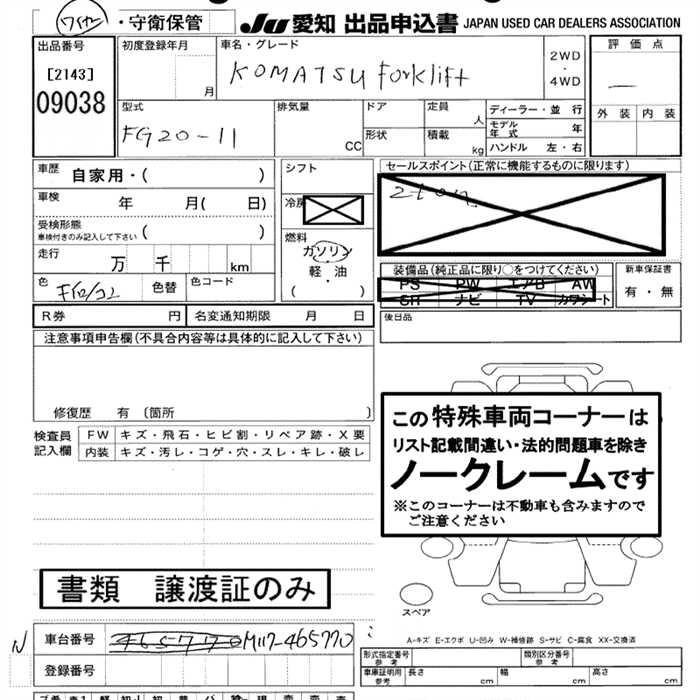 ・守衛保管 JU 愛知 出品申込書 JAPAN USED CAR DEALERS ASSOCIATION
出品番号 [2143] 09038
初度登録年月 月
車名・グレード KOMATSU Forklift 2WD・4WD
評価点 —
外装 内装
型式 FG20-11
排気量 CC
ドア 形状
定員 人 積載 kg
ディーラー・並行
モデル年式 年
ハンドル 左・右
車歴 自家用・( )
車検 年 月( 日)
受検形態 車検付きのみ記入して下さい ( )
走行 万 千 km
色 色替 色コード
シフト
冷房
燃料 ガソリン 軽・油 ( ・ )
セールスポイント(正常に機能するものに限ります)
2-ton
装備品(純正品に限り○をつけてください)
PS PW エアB AW
SR ナビ TV カワシート
新車保証書 有・無
後日品
R券 円 名変通知期限 月 日
注意事項申告欄(不具合内容等は具体的に記入して下さい)
修復歴 有 〔箇所 〕
検査員記入欄
FW キズ・飛石・ヒビ割・リペア跡・X要
内装 キズ・汚レ・コゲ・穴・スレ・キレ・破レ
この特殊車両コーナーは
リスト記載間違い・法的問題車を除き
ノークレームです
※このコーナーは不動車も含みますので
ご注意ください
スペア
書類 譲渡証のみ
A-キズ E-エクボ U-凹み W-補修跡 S-サビ C-腐食 XX-交換済
N 車台番号 M117-465770
登録番号
形式指定番号 参考 類別区分番号 参考
車庫証明用 参考 長さ cm 幅 cm 高さ cm